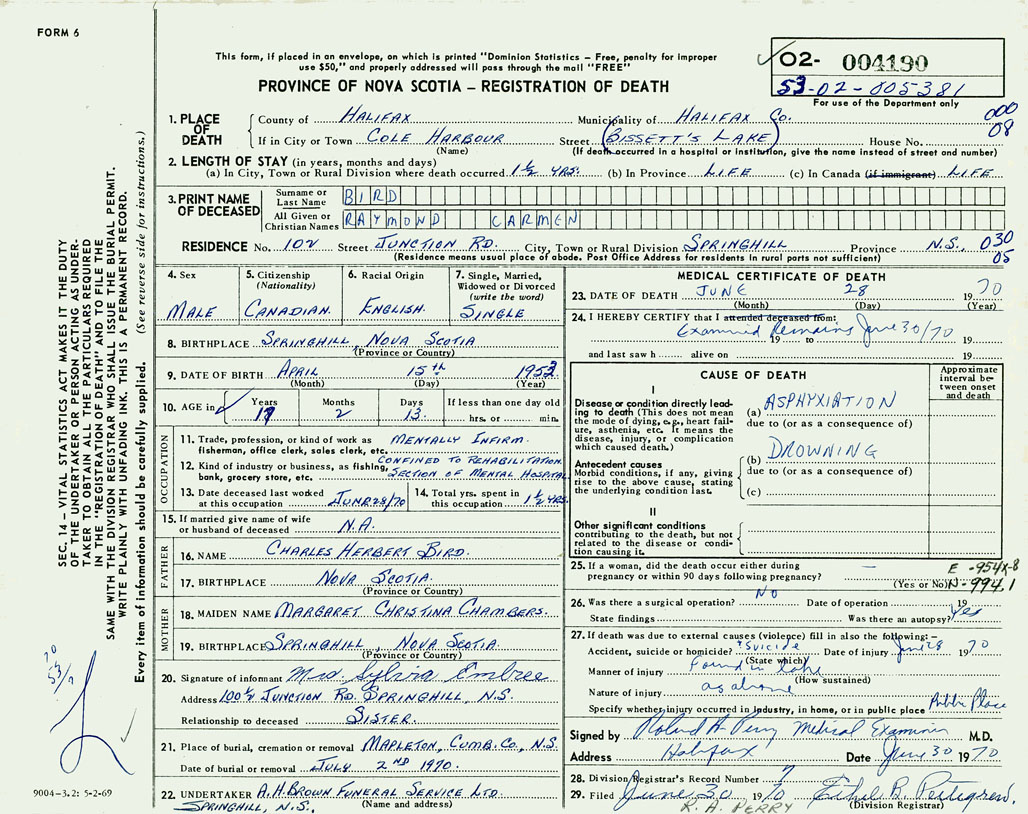 FORM 6
This form, if placed in an envelope, on which is printed "Dominion Statistics – Free, penalty for improper
use $50," and properly addressed will pass through the mail "FREE"
PROVINCE OF NOVA SCOTIA – REGISTRATION OF DEATH
O2- 004190
53-02-005381
For use of the Department only
000
08
1. PLACE OF DEATH
County of HALIFAX Municipality of HALIFAX Co.
If in City or Town COLE HARBOUR Street (BISSETT'S LAKE) House No.
(Name) (If death occurred in a hospital or institution, give the name instead of street and number)
2. LENGTH OF STAY (in years, months and days)
(a) In City, Town or Rural Division where death occurred 1½ YRS. (b) In Province LIFE (c) In Canada (if immigrant) LIFE
3. PRINT NAME OF DECEASED
Surname or Last Name BIRD
All Given or Christian Names RAYMOND CARMEN
RESIDENCE No. 102 Street JUNCTION RD. City, Town or Rural Division SPRINGHILL Province N.S., 030
05
(Residence means usual place of abode. Post Office Address for residents in rural parts not sufficient)
4. Sex
MALE
5. Citizenship
(Nationality)
CANADIAN.
6. Racial Origin
ENGLISH.
7. Single, Married,
Widowed or Divorced
(write the word)
SINGLE
8. BIRTHPLACE SPRINGHILL, NOVA SCOTIA
(Province or Country)
9. DATE OF BIRTH APRIL 15th 1953
(Month) (Day) (Year)
10. AGE in
Years 17 Months 2 Days 13. If less than one day old
hrs. or min.
OCCUPATION
11. Trade, profession, or kind of work as MENTALLY INFIRM.
fisherman, office clerk, sales clerk, etc.
12. Kind of industry or business, as fishing, CONFINED TO REHABILITATION
bank, grocery store, etc. SECTION OF MENTAL HOSPITAL
13. Date deceased last worked
at this occupation JUNE 28/70
14. Total yrs. spent in
this occupation 1½ YRS
15. If married give name of wife
or husband of deceased N.A.
FATHER
16. NAME CHARLES HERBERT BIRD.
17. BIRTHPLACE NOVA SCOTIA.
(Province or Country)
MOTHER
18. MAIDEN NAME MARGARET CHRISTINA CHAMBERS.
19. BIRTHPLACE SPRINGHILL, NOVA SCOTIA.
(Province or Country)
20. Signature of informant Mrs Sylvia Embree
Address 100½ JUNCTION RD. SPRINGHILL, N.S.
Relationship to deceased SISTER.
21. Place of burial, cremation or removal MAPLETON, CUMB. CO., N.S.
Date of burial or removal JULY 2ND 1970.
22. UNDERTAKER A.H. BROWN FUNERAL SERVICE LTD.
SPRINGHILL, N.S. (Name and address)
MEDICAL CERTIFICATE OF DEATH
23. DATE OF DEATH JUNE 28 1970
(Month) (Day) (Year)
24. I HEREBY CERTIFY that I attended deceased from:
Examined Remains June 30/70
19 to 19
and last saw h alive on 19
CAUSE OF DEATH
Approximate
interval be-
tween onset
and death
I
Disease or condition directly lead-
ing to death (This does not mean
the mode of dying, e.g., heart fail-
ure, asthenia, etc. It means the
disease, injury, or complication
which caused death.)
(a) ASPHYXIATION
due to (or as a consequence of)
Antecedent causes
Morbid conditions, if any, giving
rise to the above cause, stating
the underlying condition last.
(b) DROWNING
due to (or as a consequence of)
(c)
II
Other significant conditions
contributing to the death, but not
related to the disease or condi-
tion causing it.
25. If a woman, did the death occur either during
pregnancy or within 90 days following pregnancy? —
(Yes or No)
E-954X-8
N-994.1
26. Was there a surgical operation? No Date of operation 19
State findings Was there an autopsy? Yes
27. If death was due to external causes (violence) fill in also the following:–
Accident, suicide or homicide? "Suicide Date of injury June 28 1970
(State which)
Manner of injury Found in lake
(How sustained)
Nature of injury as above
Specify whether injury occurred in industry, in home, or in public place Public Place
Signed by Roland A. Perry Medical Examiner M.D.
Address Halifax Date June 30 1970
28. Division Registrar's Record Number 7
29. Filed June 30 1970
(Division Registrar)
R. A. PERRY
SEC. 14 – VITAL STATISTICS ACT MAKES IT THE DUTY
OF THE UNDERTAKER OR PERSON ACTING AS UNDER-
TAKER TO OBTAIN ALL THE PARTICULARS REQUIRED
IN THE "REGISTRATION OF DEATH" AND TO FILE THE
SAME WITH THE DIVISION REGISTRAR WHO SHALL ISSUE THE BURIAL PERMIT.
WRITE PLAINLY WITH UNFADING INK. THIS IS A PERMANENT RECORD.
Every item of information should be carefully supplied. (See reverse side for instructions.)
9004-3.2: 5-2-69